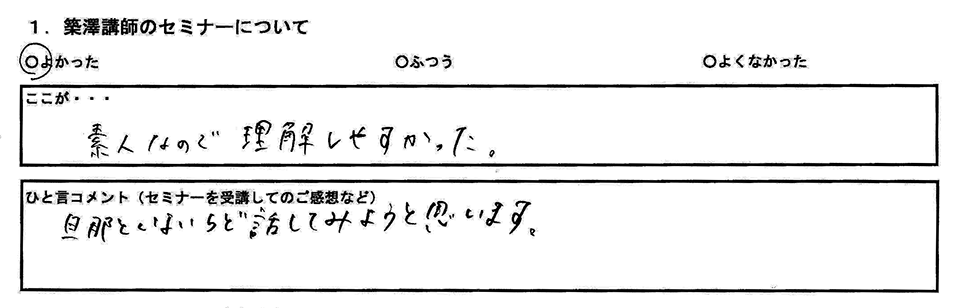 1．築澤講師のセミナーについて
○よかった ○ふつう ○よくなかった
ここが・・・
素人なので理解しやすかった。
ひと言コメント（セミナーを受講してのご感想など）
旦那といまいちど話してみようと思います。